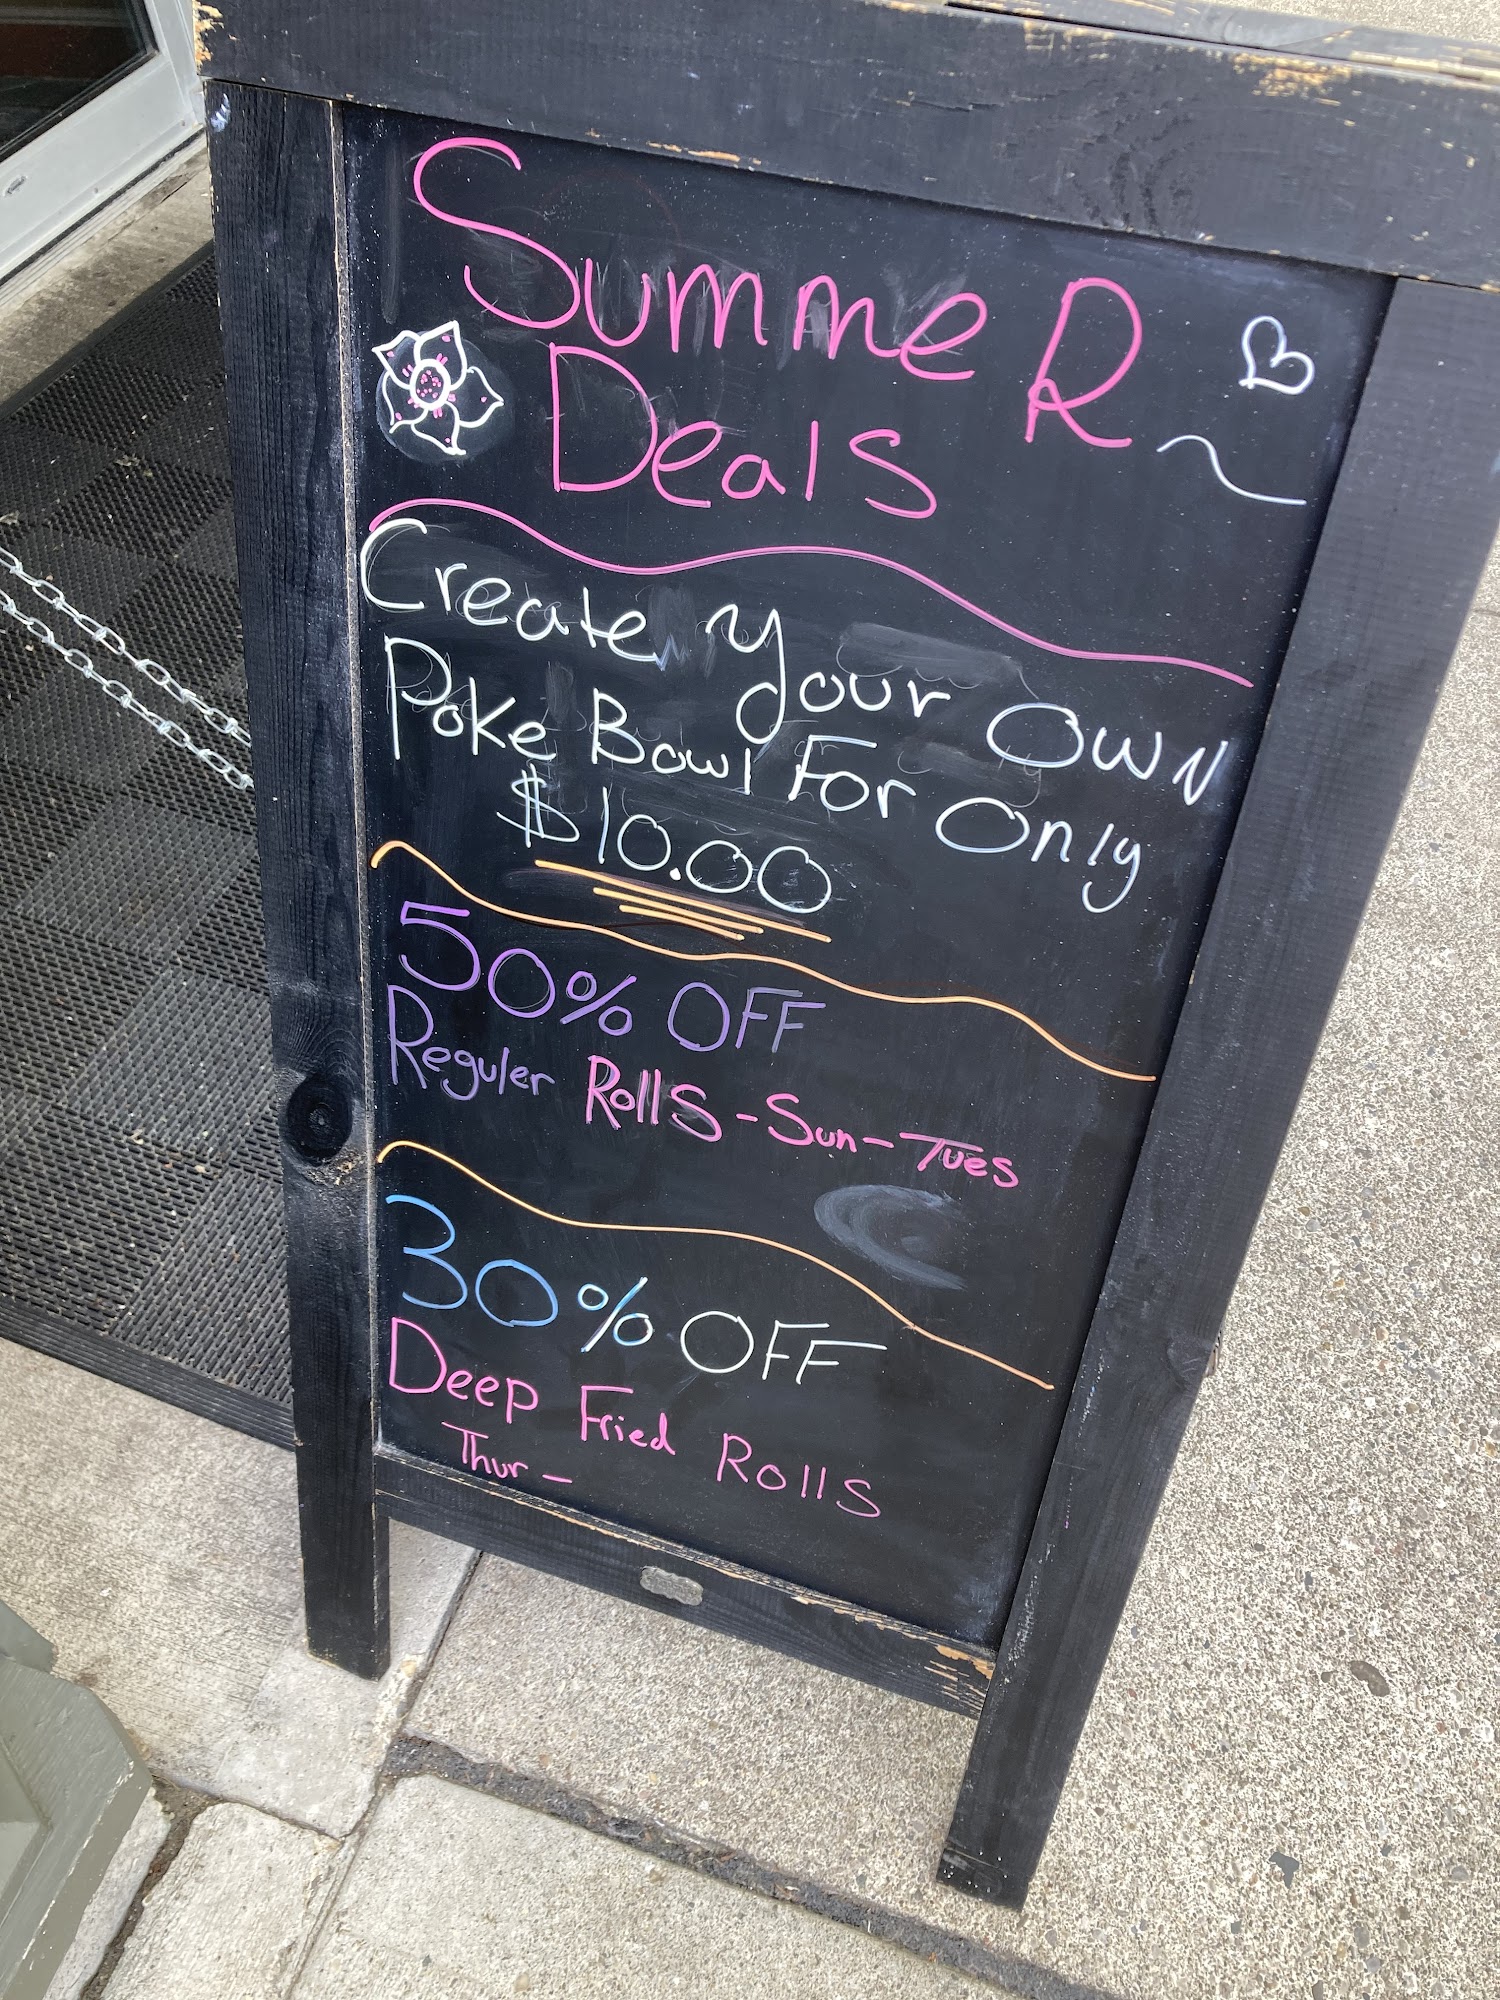 SummeR
Deals
Create your OwN
Poke Bowl For Only
$10.00
50% OFF
Reguler Rolls - Sun - Tues
30% OFF
Deep Fried Rolls
Thur -